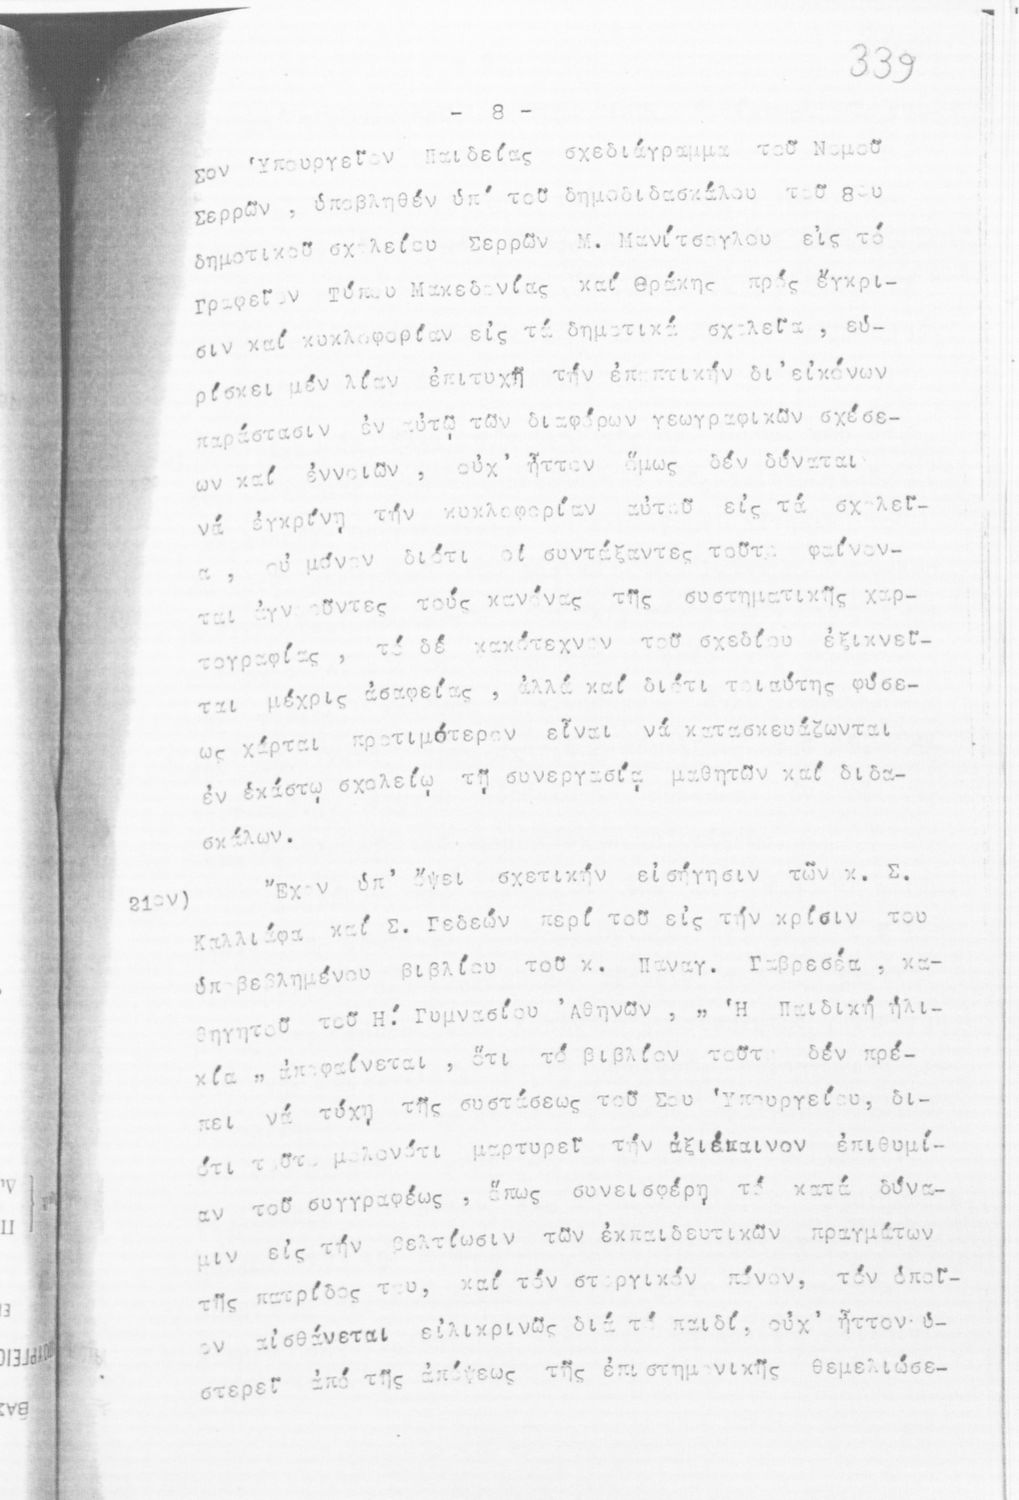 339
- 8 -
Σον Ὑπουργεῖον Παιδείας σχεδιάγραμμα τοῦ Νομοῦ
Σερρῶν , ὑποβληθέν ὑπ' τοῦ δημοδιδασκάλου τοῦ 8ου
δημοτικοῦ σχολείου Σερρῶν Μ. Μανίτσογλου εἰς τό
Γραφεῖον Τύπου Μακεδονίας καί Θράκης πρός ἔγκρι-
σιν καί κυκλοφορίαν εἰς τά δημοτικά σχολεῖα , εὑ-
ρίσκει μέν λίαν ἐπιτυχῆ τήν ἐποπτικήν δι'εἰκόνων
παράστασιν ἐν αὐτῷ τῶν διαφόρων γεωγραφικῶν σχέσε-
ων καί ἐννοιῶν , οὐχ' ἧττον ὅμως δέν δύναται
νά ἐγκρίνῃ τήν κυκλοφορίαν αὐτοῦ εἰς τά σχολεῖ-
α , οὐ μόνον διότι οἱ συντάξαντες τοῦτο φαίνον-
ται ἀγνοοῦντες τούς κανόνας τῆς συστηματικῆς χαρ-
τογραφίας , τό δέ κακότεχνον τοῦ σχεδίου ἐξικνεῖ-
ται μέχρις ἀσαφείας , ἀλλά καί διότι τοιαύτης φύσε-
ως χάρται προτιμότερον εἶναι νά κατασκευάζωνται
ἐν ἑκάστῳ σχολείῳ τῇ συνεργασίᾳ μαθητῶν καί διδα-
σκάλων.
21ον) Ἔχον ὑπ' ὄψει σχετικήν εἰσήγησιν τῶν κ. Σ.
Καλλιάφα καί Σ. Γεδεών περί τοῦ εἰς τήν κρίσιν του
ὑποβεβλημένου βιβλίου τοῦ κ. Παναγ. Γαβρεσέα , κα-
θηγητοῦ τοῦ Η! Γυμνασίου Ἀθηνῶν , „ Ἡ Παιδική ἡλι-
κία „ ἀποφαίνεται , ὅτι τό βιβλίον τοῦτο δέν πρέ-
πει νά τύχῃ τῆς συστάσεως τοῦ Σου Ὑπουργείου, δι-
ότι τοῦτο μολονότι μαρτυρεῖ τήν ἀξιέπαινον ἐπιθυμί-
αν τοῦ συγγραφέως , ὅπως συνεισφέρῃ τό κατά δύνα-
μιν εἰς τήν βελτίωσιν τῶν ἐκπαιδευτικῶν πραγμάτων
τῆς πατρίδος του, καί τόν στοργικόν πόνον, τόν ὁποῖ-
ον αἰσθάνεται εἰλικρινῶς διά τό παιδί, οὐχ' ἧττον ὑ-
στερεῖ ἀπό τῆς ἀπόψεως τῆς ἐπιστημονικῆς θεμελιώσε-